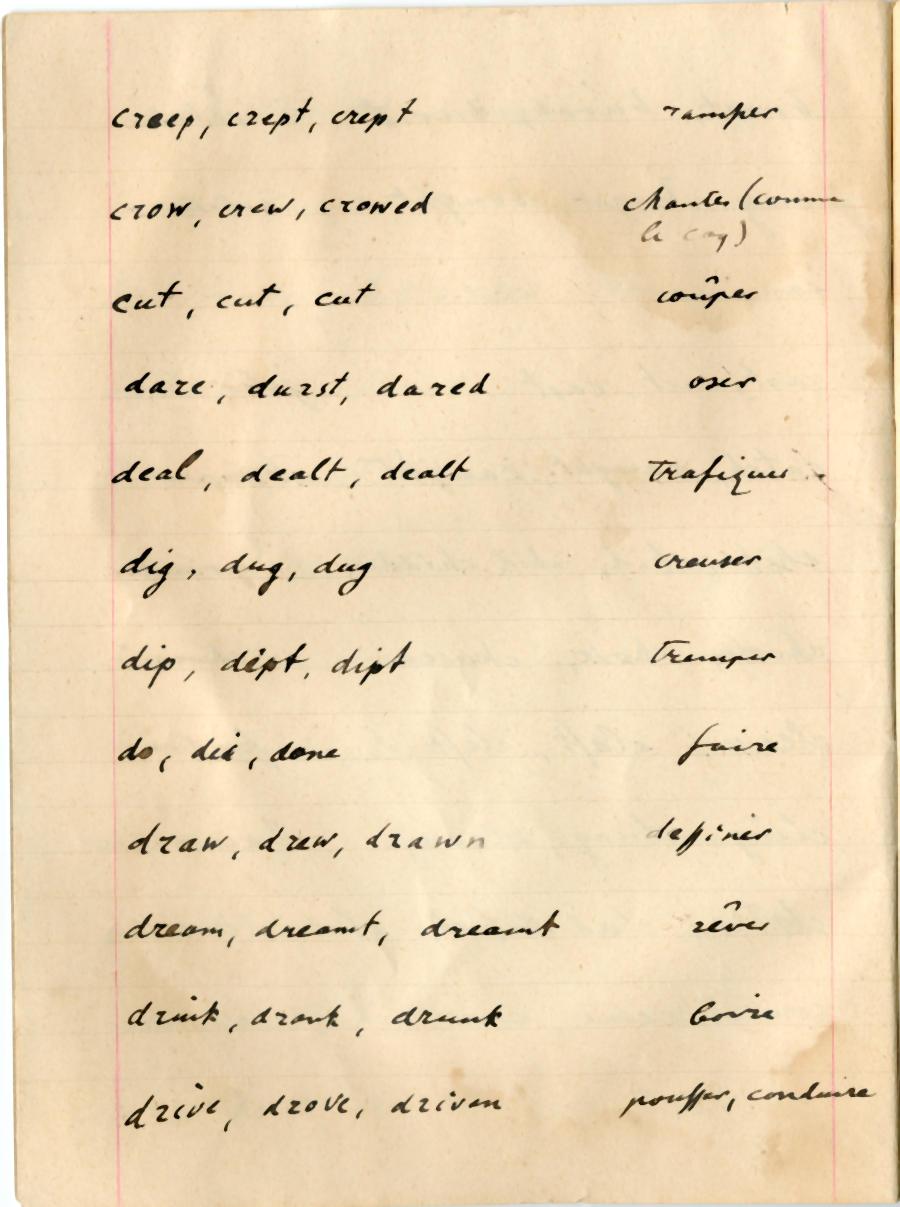 creep, crept, crept ramper
crow, crew, crowed chanter (comme
le coq)
cut, cut, cut coûper
dare, durst, dared oser
deal, dealt, dealt trafiquer
dig, dug, dug creuser
dip, dipt, dipt tremper
do, did, done faire
draw, drew, drawn dessiner
dream, dreamt, dreamt rêver
drink, drank, drunk boire
drive, drove, driven pousser, conduire